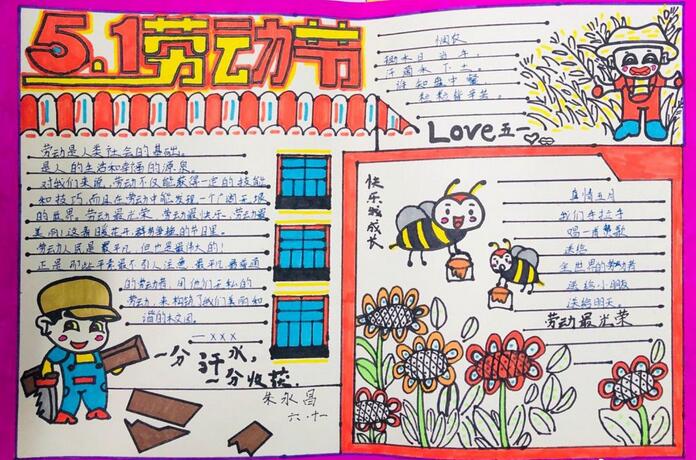 5.1劳动节
悯农
锄禾日当午，
汗滴禾下土。
谁知盘中餐
粒粒皆辛苦。
Love五一
劳动是人类社会的基础。
是人的生活和幸福的源泉。
对我们来说，劳动不仅能获得一定的技能
和技巧，而且在劳动中能发现一个广阔无垠
的世界。劳动最光荣，劳动最快乐，劳动最
美丽！这春暖花开，群芳争艳的节日里。
劳动人民是最平凡，但也是最伟大的！
正是那些平素最不引人注意，最平凡最普通
的劳动者，用他们无私的
劳动，来构筑了我们美丽和
谐的校园。
一xxx
一分汗水，
一分收获，
朱永昌
六.十一
快乐成长
真情五月
我们手拉手
唱一首赞歌
送给
全世界的劳动者
送给小朋友
送给明天。
劳动最光荣